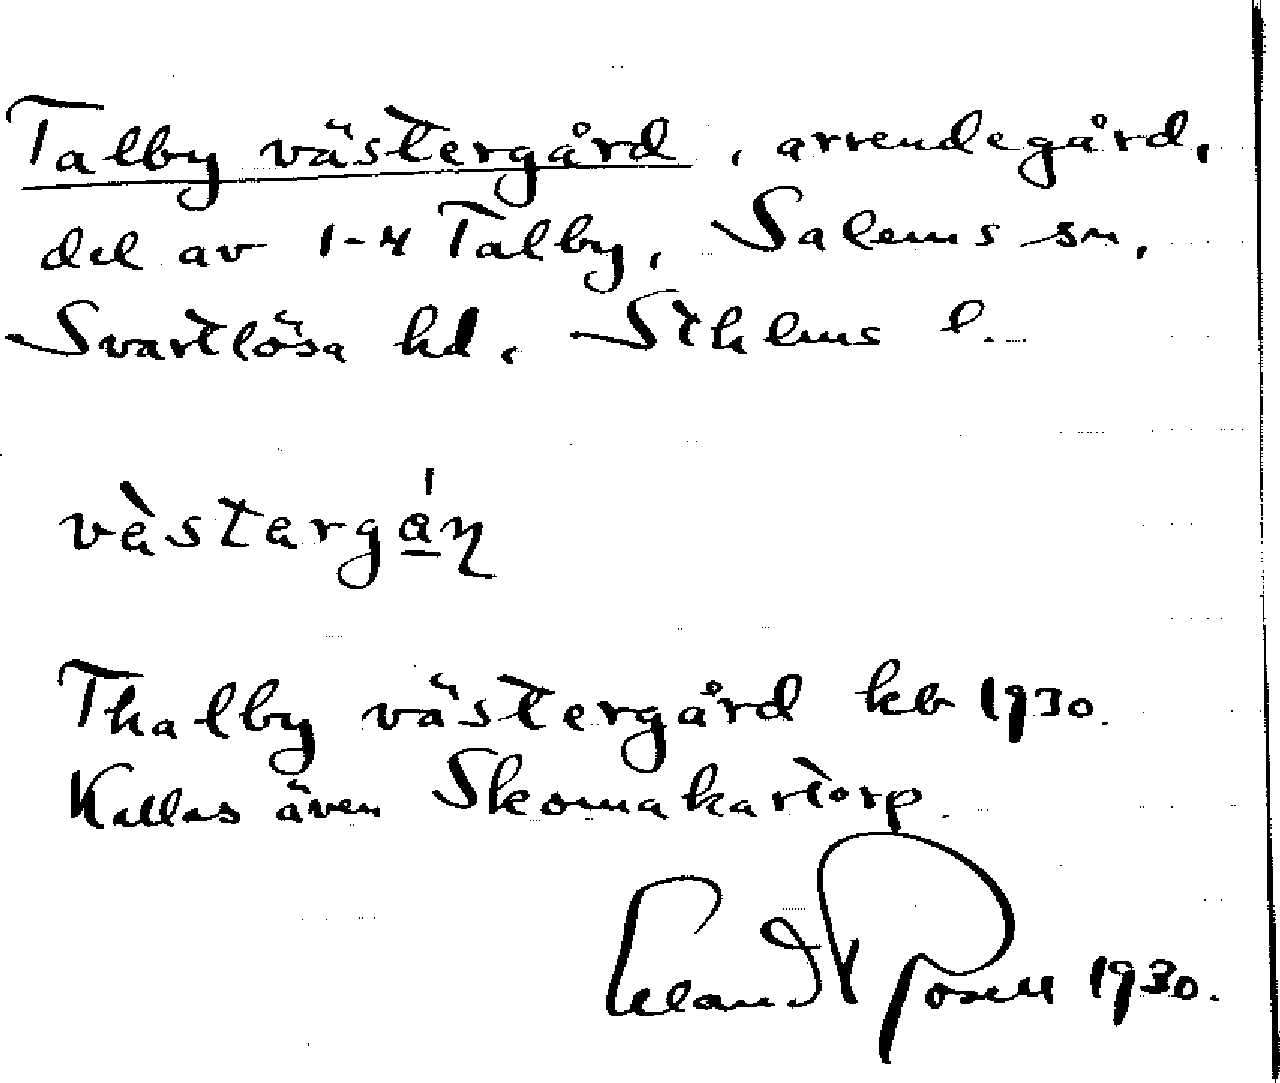 Talby västergård, arrendegård,
del av 1-4 Talby, Salems sn,
Svartlösa hd, Sthlms l.
vàstərgǻɳ
Thalby västergård kb 1930.
Kallas även Skomakartorp.
Erland Rosell 1930.